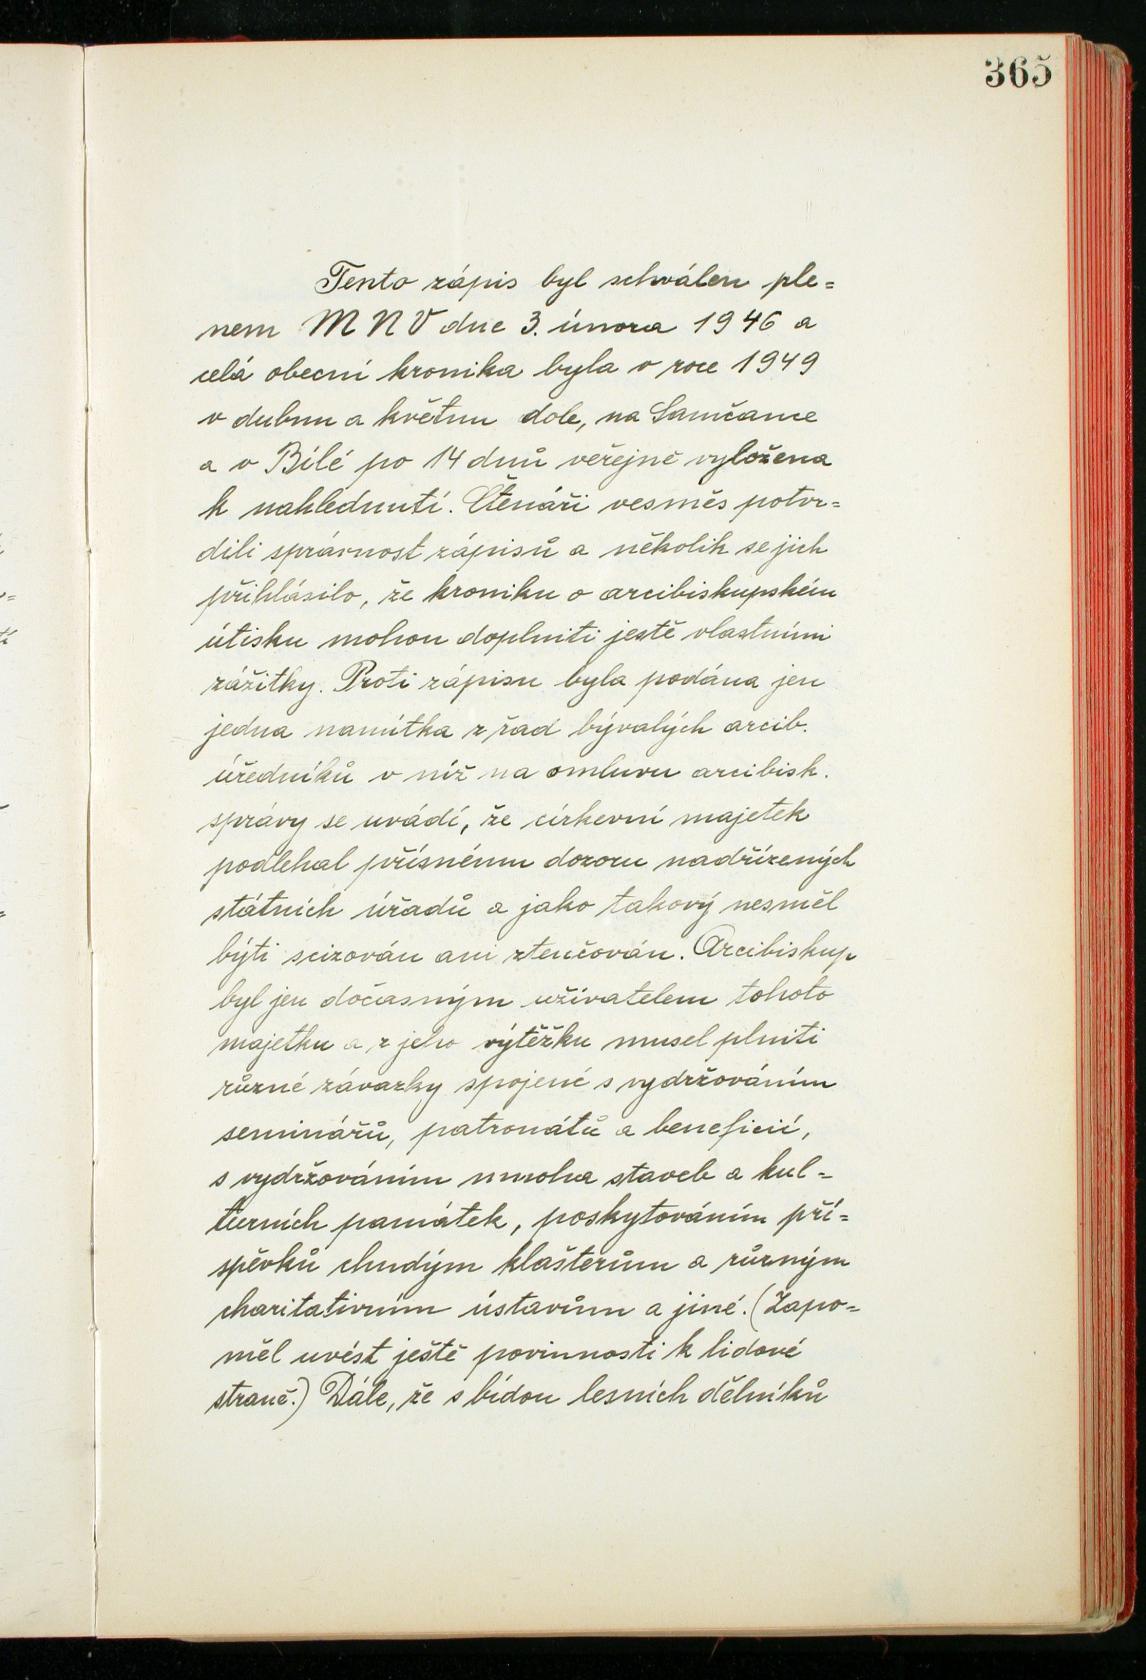 365
Tento zápis byl schválen ple=
nem MNV dne 3. února 1946 a
celá obecní kronika byla v roce 1949
v dubnu a květnu dole, na Samčance
a v Bílé po 14 dnů veřejně vyložena
k nahlédnutí. Čtenáři vesměs potvr=
dili správnost zápisů a několik se jich
přihlásilo, že kroniku o arcibiskupském
útisku mohou doplniti ještě vlastními
zážitky. Proti zápisu byla podána jen
jedna namítka z řad bývalých arcib.
úředníků v níž na omluvu arcibisk.
správy se uvádí, že církevní majetek
podléhal přísnému dozoru nadřízených
státních úřadů a jako takový nesměl
býti scizován ani ztenčován. Arcibiskup
byl jen dočasným uživatelem tohoto
majetku a z jeho výtěžku musel plniti
různé závazky spojené s vydržováním
seminářů, patronátů a beneficií,
s vydržováním mnoha staveb a kul=
turních památek, poskytováním pří=
spěvků chudým klášterům a různým
charitativním ústavům a jiné. (Zapo=
měl uvést ještě povinnosti k lidové
straně.) Dále, že s bídou lesních dělníků